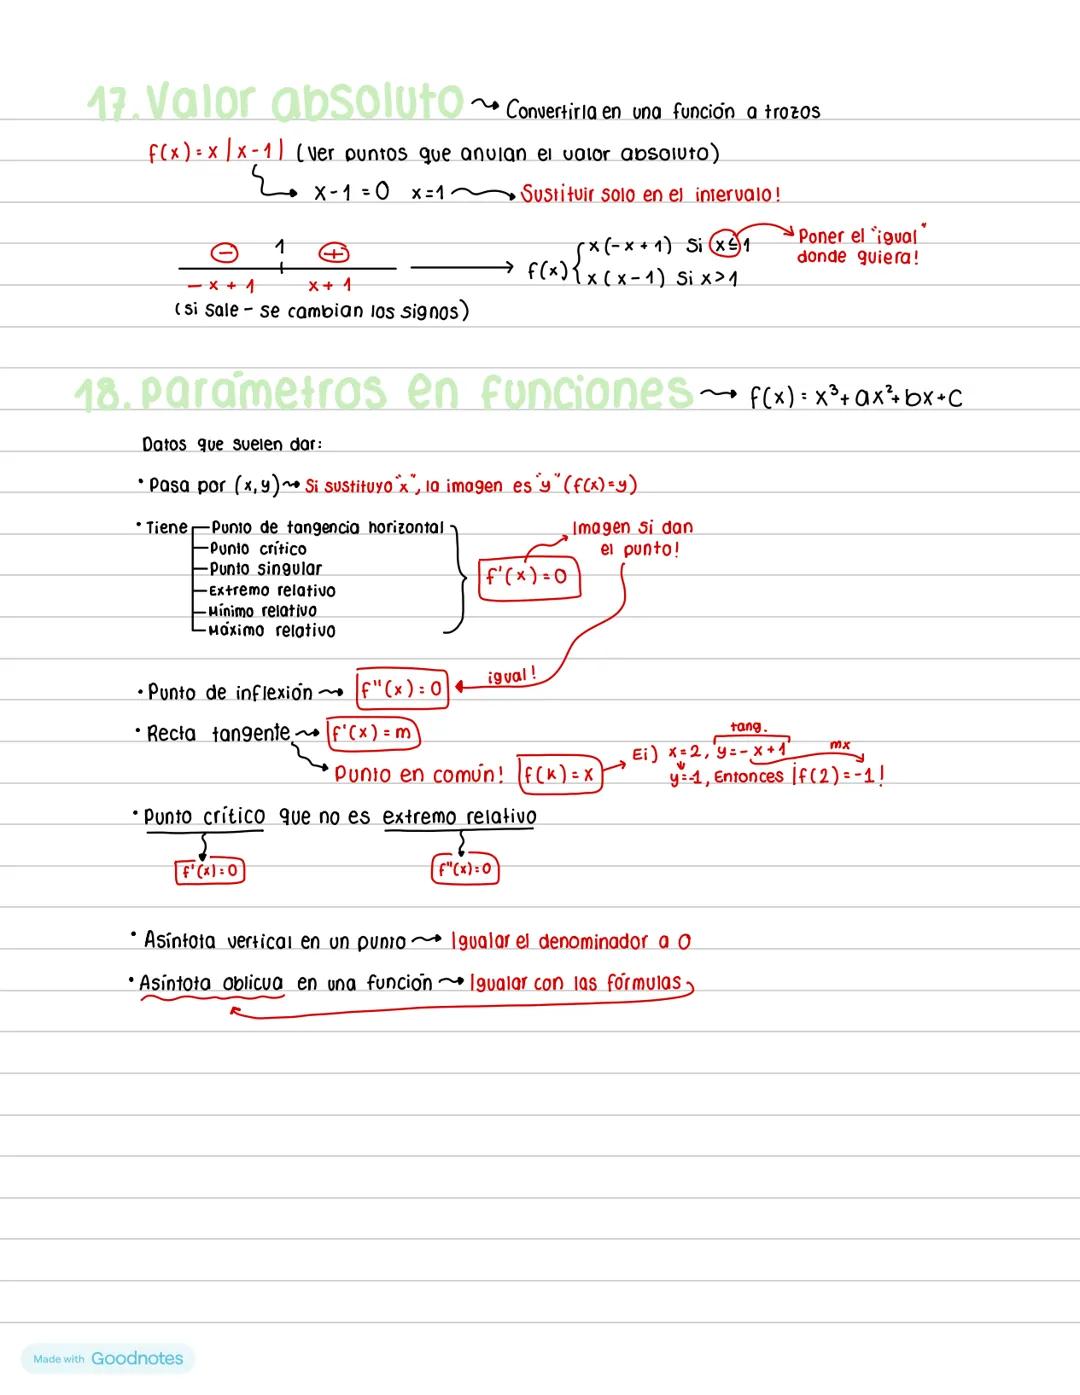 17. Valor absoluto ⤳ Convertirla en una función a trozos
f(x) = x |x-1| (Ver puntos que anulan el valor absoluto)
x-1 = 0 x=1 → Sustituir solo en el intervalo!
⊖ 1 ⊕
-x+1 x+1
(si sale - se cambian los signos)
f(x) { x(-x+1) si x≤1
x(x-1) si x>1
Poner el "igual"
donde quiera!
18. parámetros en funciones ⤳ f(x) = x³+ax²+bx+c
Datos que suelen dar:
• Pasa por (x,y) ⤳ Si sustituyo "x", la imagen es "y" (f(x)=y)
• Tiene - Punto de tangencia horizontal
- Punto crítico
- Punto singular
- Extremo relativo
- Mínimo relativo
- Máximo relativo
f'(x)=0
Imagen si dan
el punto!
igual!
• Punto de inflexión ⤳ f''(x)=0
• Recta tangente ⤳ f'(x)=m
Punto en común! f(k)=x → Ej) x=2, y=-x+1
tang.
mx
y=-1, Entonces ¡f(2)=-1!
• Punto crítico que no es extremo relativo
f'(x)=0 f''(x)=0
• Asíntota vertical en un punto ⤳ Igualar el denominador a 0
• Asíntota oblicua en una función ⤳ Igualar con las fórmulas
Made with Goodnotes